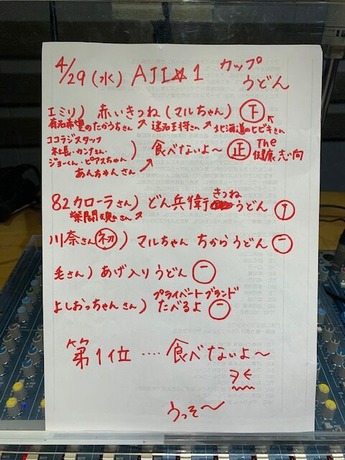 4/29(水) AJI☆1 カップ
うどん
エミリ) 赤いきつね(マルちゃん) 下
有名希望のたかうちさん 遠石王将さん 北海道のヒビキさん
ココラジスタッフ
ジョーくん・ピクスちゃん
あんちゃんさん
) 食べないよ〜 正 The
健康志向
82カローラさん) どん兵衛きつねうどん T
柴関魂さん
川奈さん 初 マルちゃん ちからうどん 一
毛さん) あげ入りうどん 一
よしおっちゃんさん) プライベートブランド
たべるよ 一
第1位 ‥‥ 食べないよ〜
うっそ〜